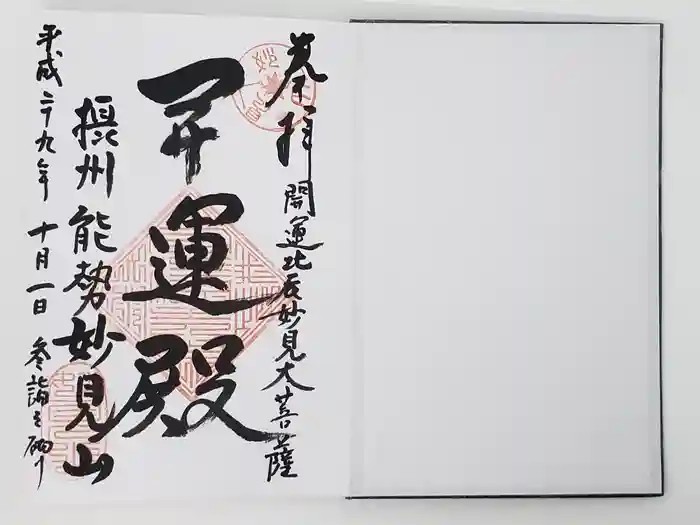 奉拝
開運北辰妙見大菩薩
開運殿
摂州能勢妙見山
平成二十九年十月一日 参詣之砌り